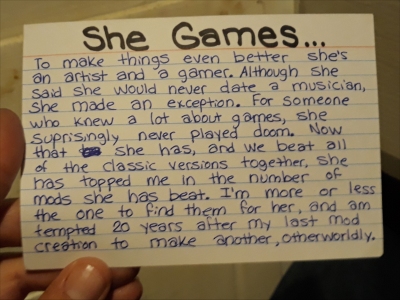 She Games...
To make things even better she's
an artist and a gamer. Although she
said she would never date a musician,
she made an exception. For someone
who knew a lot about games, she
suprisingly never played doom. Now
that she has, and we beat all
of the classic versions together, she
has topped me in the number of
mods she has beat. I'm more or less
the one to find them for her, and am
tempted 20 years after my last mod
creation to make another, otherworldly.